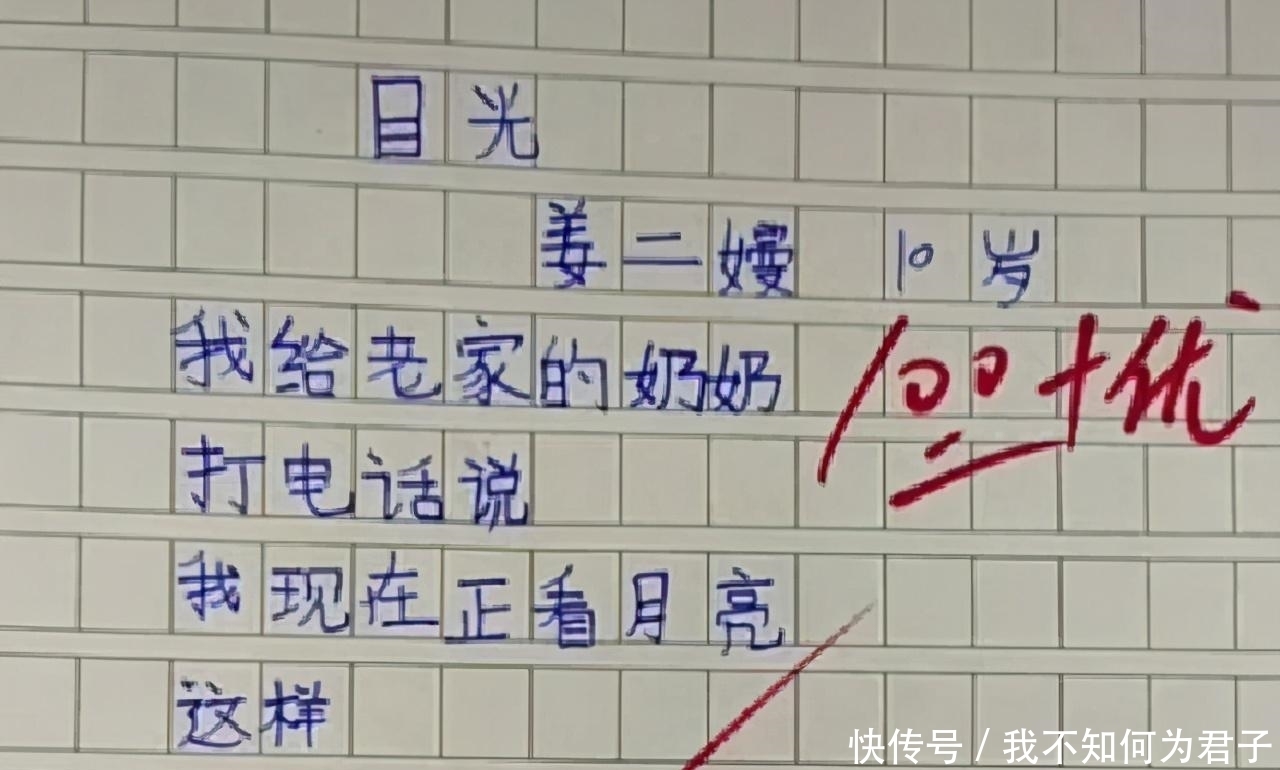 目光
姜二嫚 10岁
我给老家的奶奶
100+优
打电话说
我现在正看月亮
这样
快传号 / 我不知何为君子